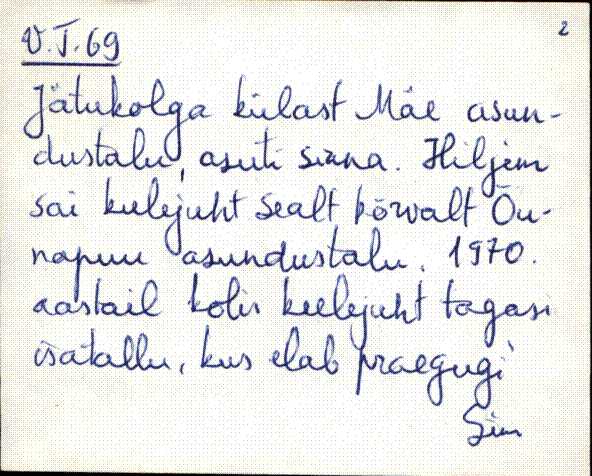 2
V.T.69
Jätukolga külast Mäe asun-
dustalu, asuti sinna. Hiljem
sai kulejuht sealt kõrvalt Õu-
napuu asundustalu. 1970.
aastail kolis keelejuht tagasi
isatallu, kus elab praegugi